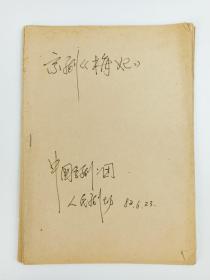 京剧《梅妃》
中国京剧二团
人民剧场 82.6.23.